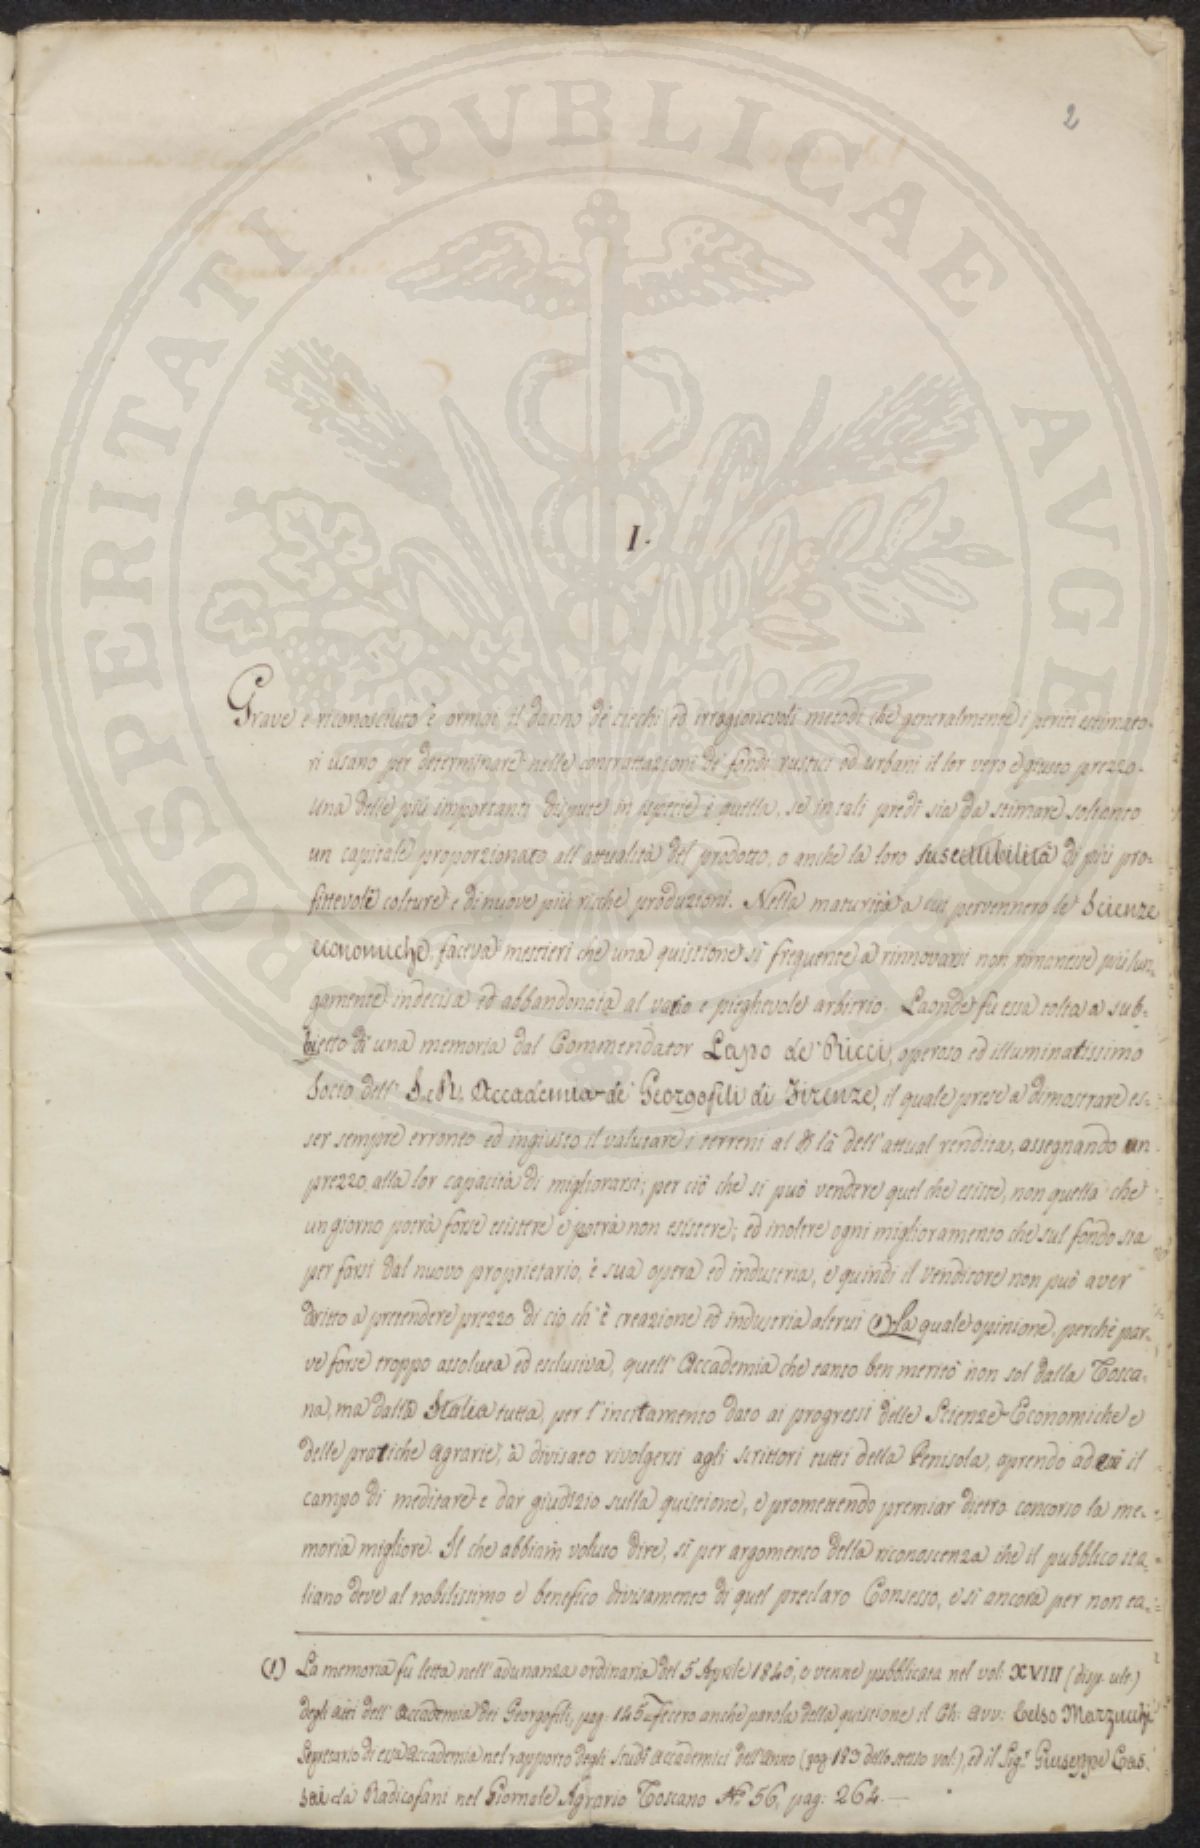 2
PROSPERITATI PUBLICAE AUGENDAE
I.
Grave e riconosciuto è ormai il danno de' ciechi ed irragionevoli metodi che generalmente i periti estimato-
ri usano per determinare nelle contrattazioni de' fondi rustici ed urbani il lor vero e giusto prezzo.
una delle più importanti dispute in ispecie è quella, se in tali predî sia da stimare soltanto
un capitale proporzionato all'attualità del prodotto, o anche la loro suscettibilità di più pro-
fittevoli colture e di nuove più ricche produzioni. Nella maturità a cui pervennero le Scienze
economiche, faceva mestieri che una quistione sì frequente a rinnovarsi non rimanesse più lun-
gamente indecisa ed abbandonata al vario e pieghevole arbitrio. Laonde fu essa tolta a sub-
bietto di una memoria dal Commendator Lapo de' Ricci, operoso ed illuminatissimo
Socio dell' I. e R. Accademia de' Georgofili di Firenze, il quale prese a dimostrare es-
ser sempre erroneo ed ingiusto il valutare i terreni al di là dell'attual rendita, assegnando un
prezzo alla lor capacità di migliorarsi; per ciò che si può vendere quel che esiste, non quella che
un giorno potrà forse esistere e potrà non esistere; ed inoltre ogni miglioramento che sul fondo sia
per farsi dal nuovo proprietario, è sua opera ed industria, e quindi il venditore non può aver
dritto a pretendere prezzo di ciò, ch'è creazione ed industria altrui (1) La quale opinione, perchè par-
ve forse troppo assoluta ed esclusiva, quell'Accademia che tanto ben meritò non sol dalla Tosca-
na, ma dalla Italia tutta, per l'incitamento dato ai progressi delle Scienze Economiche e
delle pratiche agrarie, à divisato rivolgersi agli scrittori tutti della Penisola, aprendo ad essi il
campo di meditare e dar giudizio sulla quistione, e promettendo premiar dietro concorso la me-
moria migliore. Il che abbiam voluto dire, sì per argomento della riconoscenza che il pubblico ita-
liano deve al nobilissimo e benefico divisamento di quel preclaro Consesso, e sì ancora per non ta-
(1) La memoria fu letta nell'adunanza ordinaria del 5 Aprile 1840, e venne pubblicata nel vol: XVIII (disp. ult.)
degli atti dell'Accademia dei Georgofili, pag: 145. Fecero anche parola della quistione il Ch: Avv: Celso Marzucchi
Segretario di essa Accademia nel rapporto degli Studî Accademici dell'Anno (pag. 183 dello stesso vol:), ed il Sig.r Giuseppe Cas-
sai da Radicofani nel Giornale Agrario Toscano N.° 56, pag: 264.—